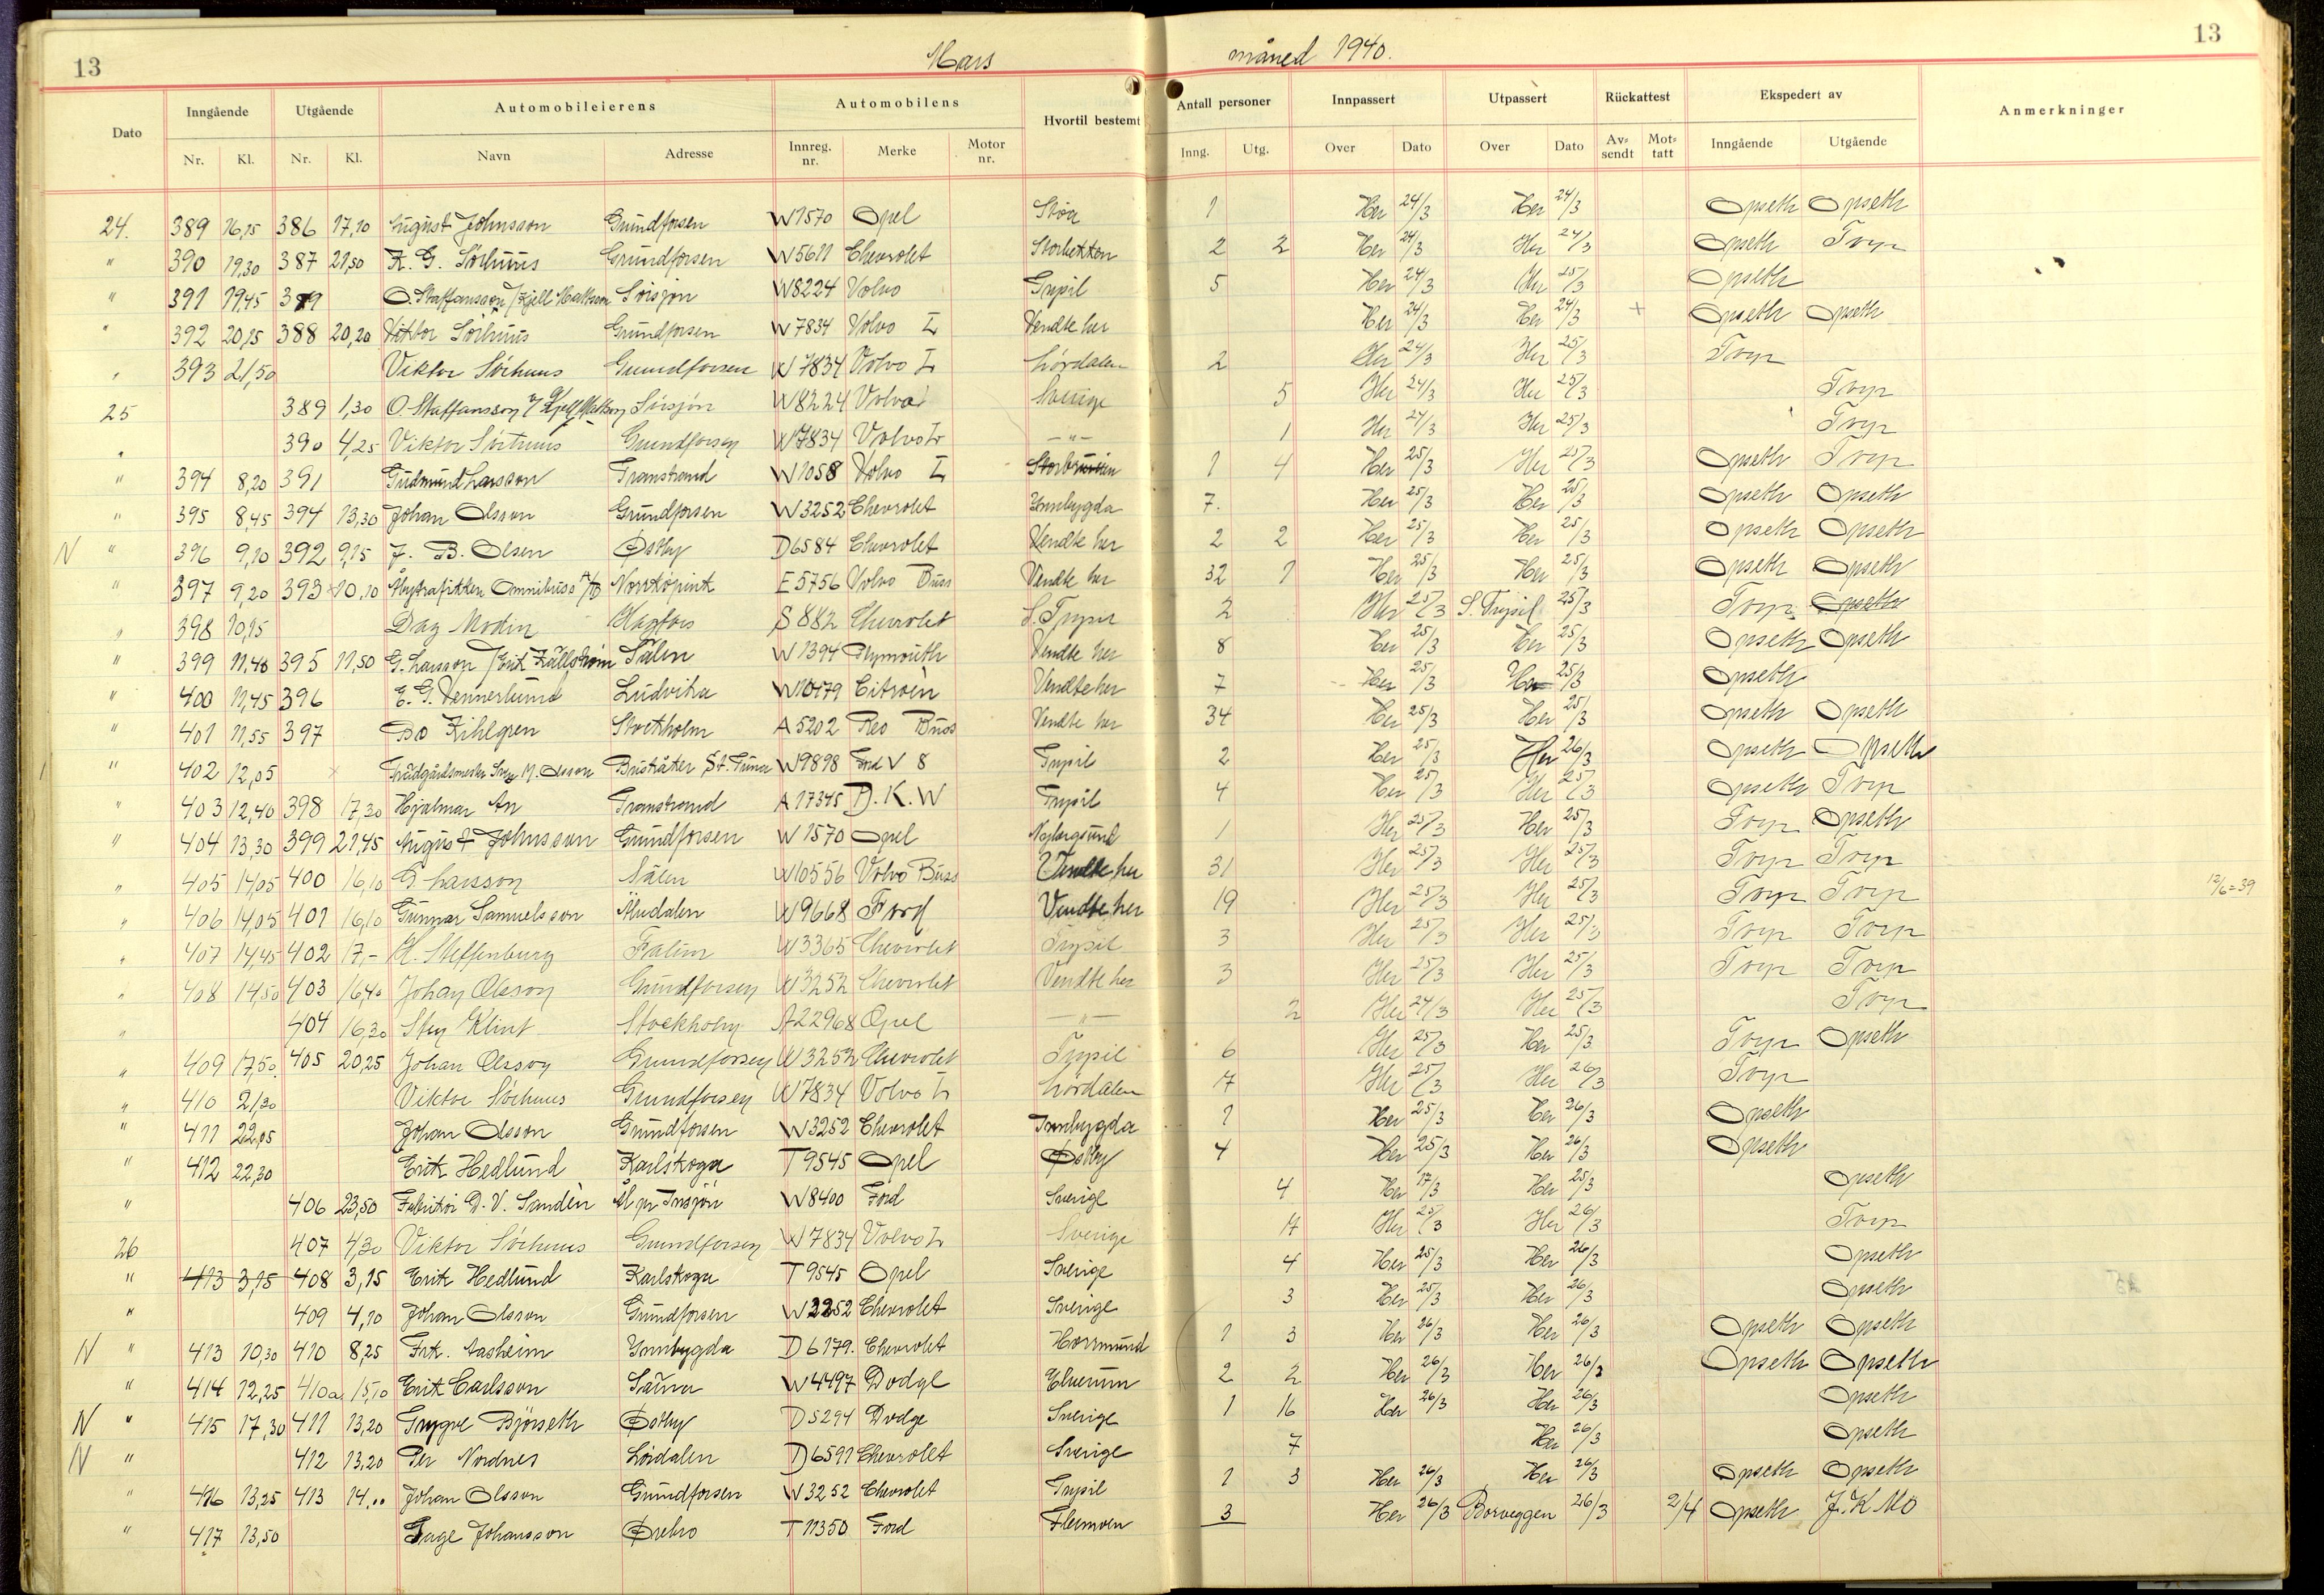 13 Mars måned 1940. 13
Dato Inngående Utgående Automobileierens Automobilens Hvortil bestemt Antall personer Innpassert Utpassert Rückattest Ekspedert av Anmerkninger
Nr. Kl. Nr. Kl. Navn Adresse Innreg. nr. Merke Motor nr. Inng. Utg. Over Dato Over Dato Av-sendt Mot-tatt Inngående Utgående
24. 389 16,15 386 17,10 August Johnsson Grundforsen W1570 Opel Støa 1 Her 24/3 Her 24/3 Opseth Opseth
" 390 19,30 387 21,50 K. G. Sörhuus Grundforsen W5611 Chevrolet Storbekken 2 2 Her 24/3 Her 24/3 Opseth Torp
" 391 19,45 389 O. Staffansson / Kjell Mattsson Sörsjön W8224 Volvo Trysil 5 Her 24/3 Her 25/3 Opseth
" 392 20,15 388 20,20 Viktor Sörhuus Grundforsen W7834 Volvo L Vendte her Her 24/3 Her 24/3 + Opseth Opseth
" 393 21,50 Viktor Sörhuus Grundforsen W7834 Volvo L Lördalen 2 Her 24/3 Her 25/3 Torp
25 389 1,30 O. Staffansson / Kjell Mattson Sörsjön W8224 Volvo Sverige 5 Her 24/3 Her 25/3 Torp
" 390 4,25 Viktor Sörhuus Grundforsen W7834 Volvo L —"— 1 Her 24/3 Her 25/3 Torp
" 394 8,20 391 Gudmund Larsson Transtrand W1058 Volvo L 1 4 Her 25/3 Her 25/3 Opseth Torp
" 395 8,45 394 13,30 Johan Olsson Grundforsen W3252 Chevrolet Innbygda 7. Her 25/3 Her 25/3 Opseth Opseth
N " 396 9,10 392 9,15 J. B. Olsen Østby D6584 Chevrolet Vendte her 2 2 Her 25/3 Her 25/3 Opseth Opseth
" 397 9,20 393 10,10 Åbytrafikken Omnibuss A/B Norrköpink E5756 Volvo Buss Vendte her 32 1 Her 25/3 Her 25/3 Opseth Opseth
" 398 10,15 Dag Modin Hagfors S882 Chevrolet S. Trysil 2 Her 25/3 S. Trysil 25/3 Torp Opseth
" 399 11,40 395 11,50 G. Larsson / Erik Källström Sälen W1394 Plymouth Vendte her 8 Her 25/3 Her 25/3 Opseth Opseth
" 400 11,45 396 E. G. Vennerlund Ludvika W10179 Citroèn Vendte her 7 Her 25/3 Her 25/3 Opseth
" 401 11,55 397 Bo Kihlgren Stockholm A5202 Reo Buss Vendte her 34 Her 25/3 Her 25/3 Opseth Opseth
" 402 12,05 M. Olsson St. Tuna W9898 Ford V 8 Trysil 2 Her 25/3 Her 26/3 Opseth Opseth
" 403 12,40 398 17,30 Hjalmar An Transtrand A17345 D.K.W Trysil 4 Her 25/3 Her 25/3 Opseth Torp
" 404 13,30 399 21,45 August Johnsson Grundforsen W1570 Opel Nybergsund 1 Her 25/3 Her 25/3 Torp Opseth
" 405 14,05 400 16,10 G Larsson Sälen W10556 Volvo Buss Vendte her 31 Her 25/3 Her 25/3 Torp Torp
" 406 14,05 401 16,10 Gunnar Samuelsson Älvdalen W9668 Ford Vendte her 19 Her 25/3 Her 25/3 Torp Torp 12/6=39
" 407 14,45 402 17,- H. Steffenburg Falun W3365 Chevrolet Trysil 3 Her 25/3 Her 25/3 Torp Torp
" 408 14,50 403 16,40 Johan Olsson Grundforsen W3252 Chevrolet Vendte her 3 Her 25/3 Her 25/3 Torp Torp
" 404 16,30 Sten Klint Stockholm A22968 Opel —"— 2 Her 24/3 Her 25/3 Torp
" 409 17,50 405 20,25 Johan Olsson Grundforsen W3252 Chevrolet Trysil 6 Her 25/3 Her 25/3 Torp Opseth
" 410 21,30 Viktor Sörhuus Grundforsen W7834 Volvo L Lördalen 17 Her 25/3 Her 26/3 Torp
" 411 22,05 Johan Olsson Grundforsen W3252 Chevrolet Innbygda 1 Her 25/3 Her 26/3 Opseth
" 412 22,30 Erik Hedlund Karlskoga T9545 Opel Østby 4 Her 25/3 Her 26/3 Opseth
" 406 23,50 D. V. Sandèn Ål pr Insjön W8400 Ford Sverige 4 Her 17/3 Her 25/3 Opseth
26 407 4,30 Viktor Sörhuus Grundforsen W7834 Volvo L Sverige 17 Her 25/3 Her 26/3 Torp
" 413 3,15 408 3,15 Erik Hedlund Karlskoga T9545 Opel Sverige 4 Her 25/3 Her 26/3 Opseth
" 409 4,10 Johan Olsson Grundforsen W3252 Chevrolet Sverige 3 Her 25/3 Her 26/3 Opseth
N " 413 10,30 410 8,25 Frk. Aasheim Innbygda D6179. Chevrolet Horrmund 1 3 Her 26/3 Her 26/3 Opseth Opseth
" 414 12,25 410a 15,10 Erik Carlsson Särna W4497 Dodge Elverum 2 2 Her 26/3 Her 26/3 Opseth Opseth
N " 415 17,30 411 13,20 Trygve Björseth Østby D5294 Dodge Sverige 1 16 Her 26/3 Her 26/3 Opseth
N " 412 13,20 Per Nordnes Lördalen D6591 Chevrolet Sverige 7 Her 26/3 Opseth
" 416 13,25 413 14.. Johan Olsson Grundforsen W3252 Chevrolet Trysil 1 3 Her 26/3 Her 26/3 Opseth Opseth
" 417 13,50 Inge Johansson Ørebro T11350 Ford Flermoen 3 Her 26/3 Borveggen 26/3 2/4 Opseth J. K. Mo